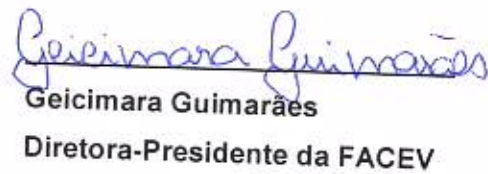 Geicimara Guimarães
Geicimara Guimarães
Diretora-Presidente da FACEV